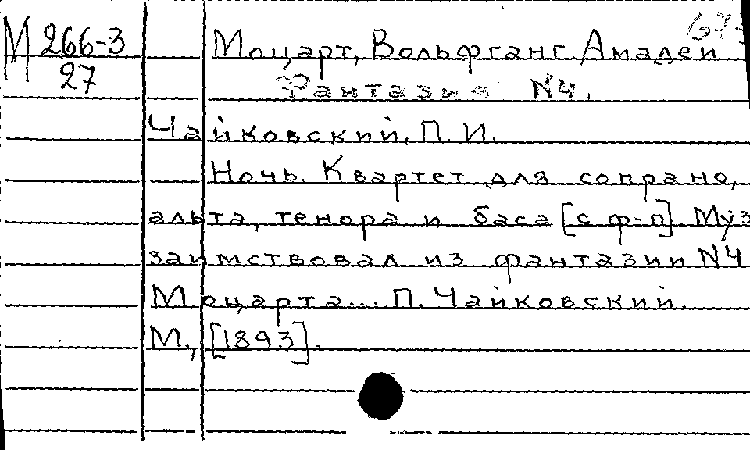 М 266-3
27
Моцарт, Вольфганг Амадей
Фантазия N4.
Чайковский, П. И.
Ночь. Квартет для сопрано,
альта, тенора и баса [с ф-п] Муз
заимствовал из фантазии N4
Моцарта... П. Чайковский.
М., [1893].